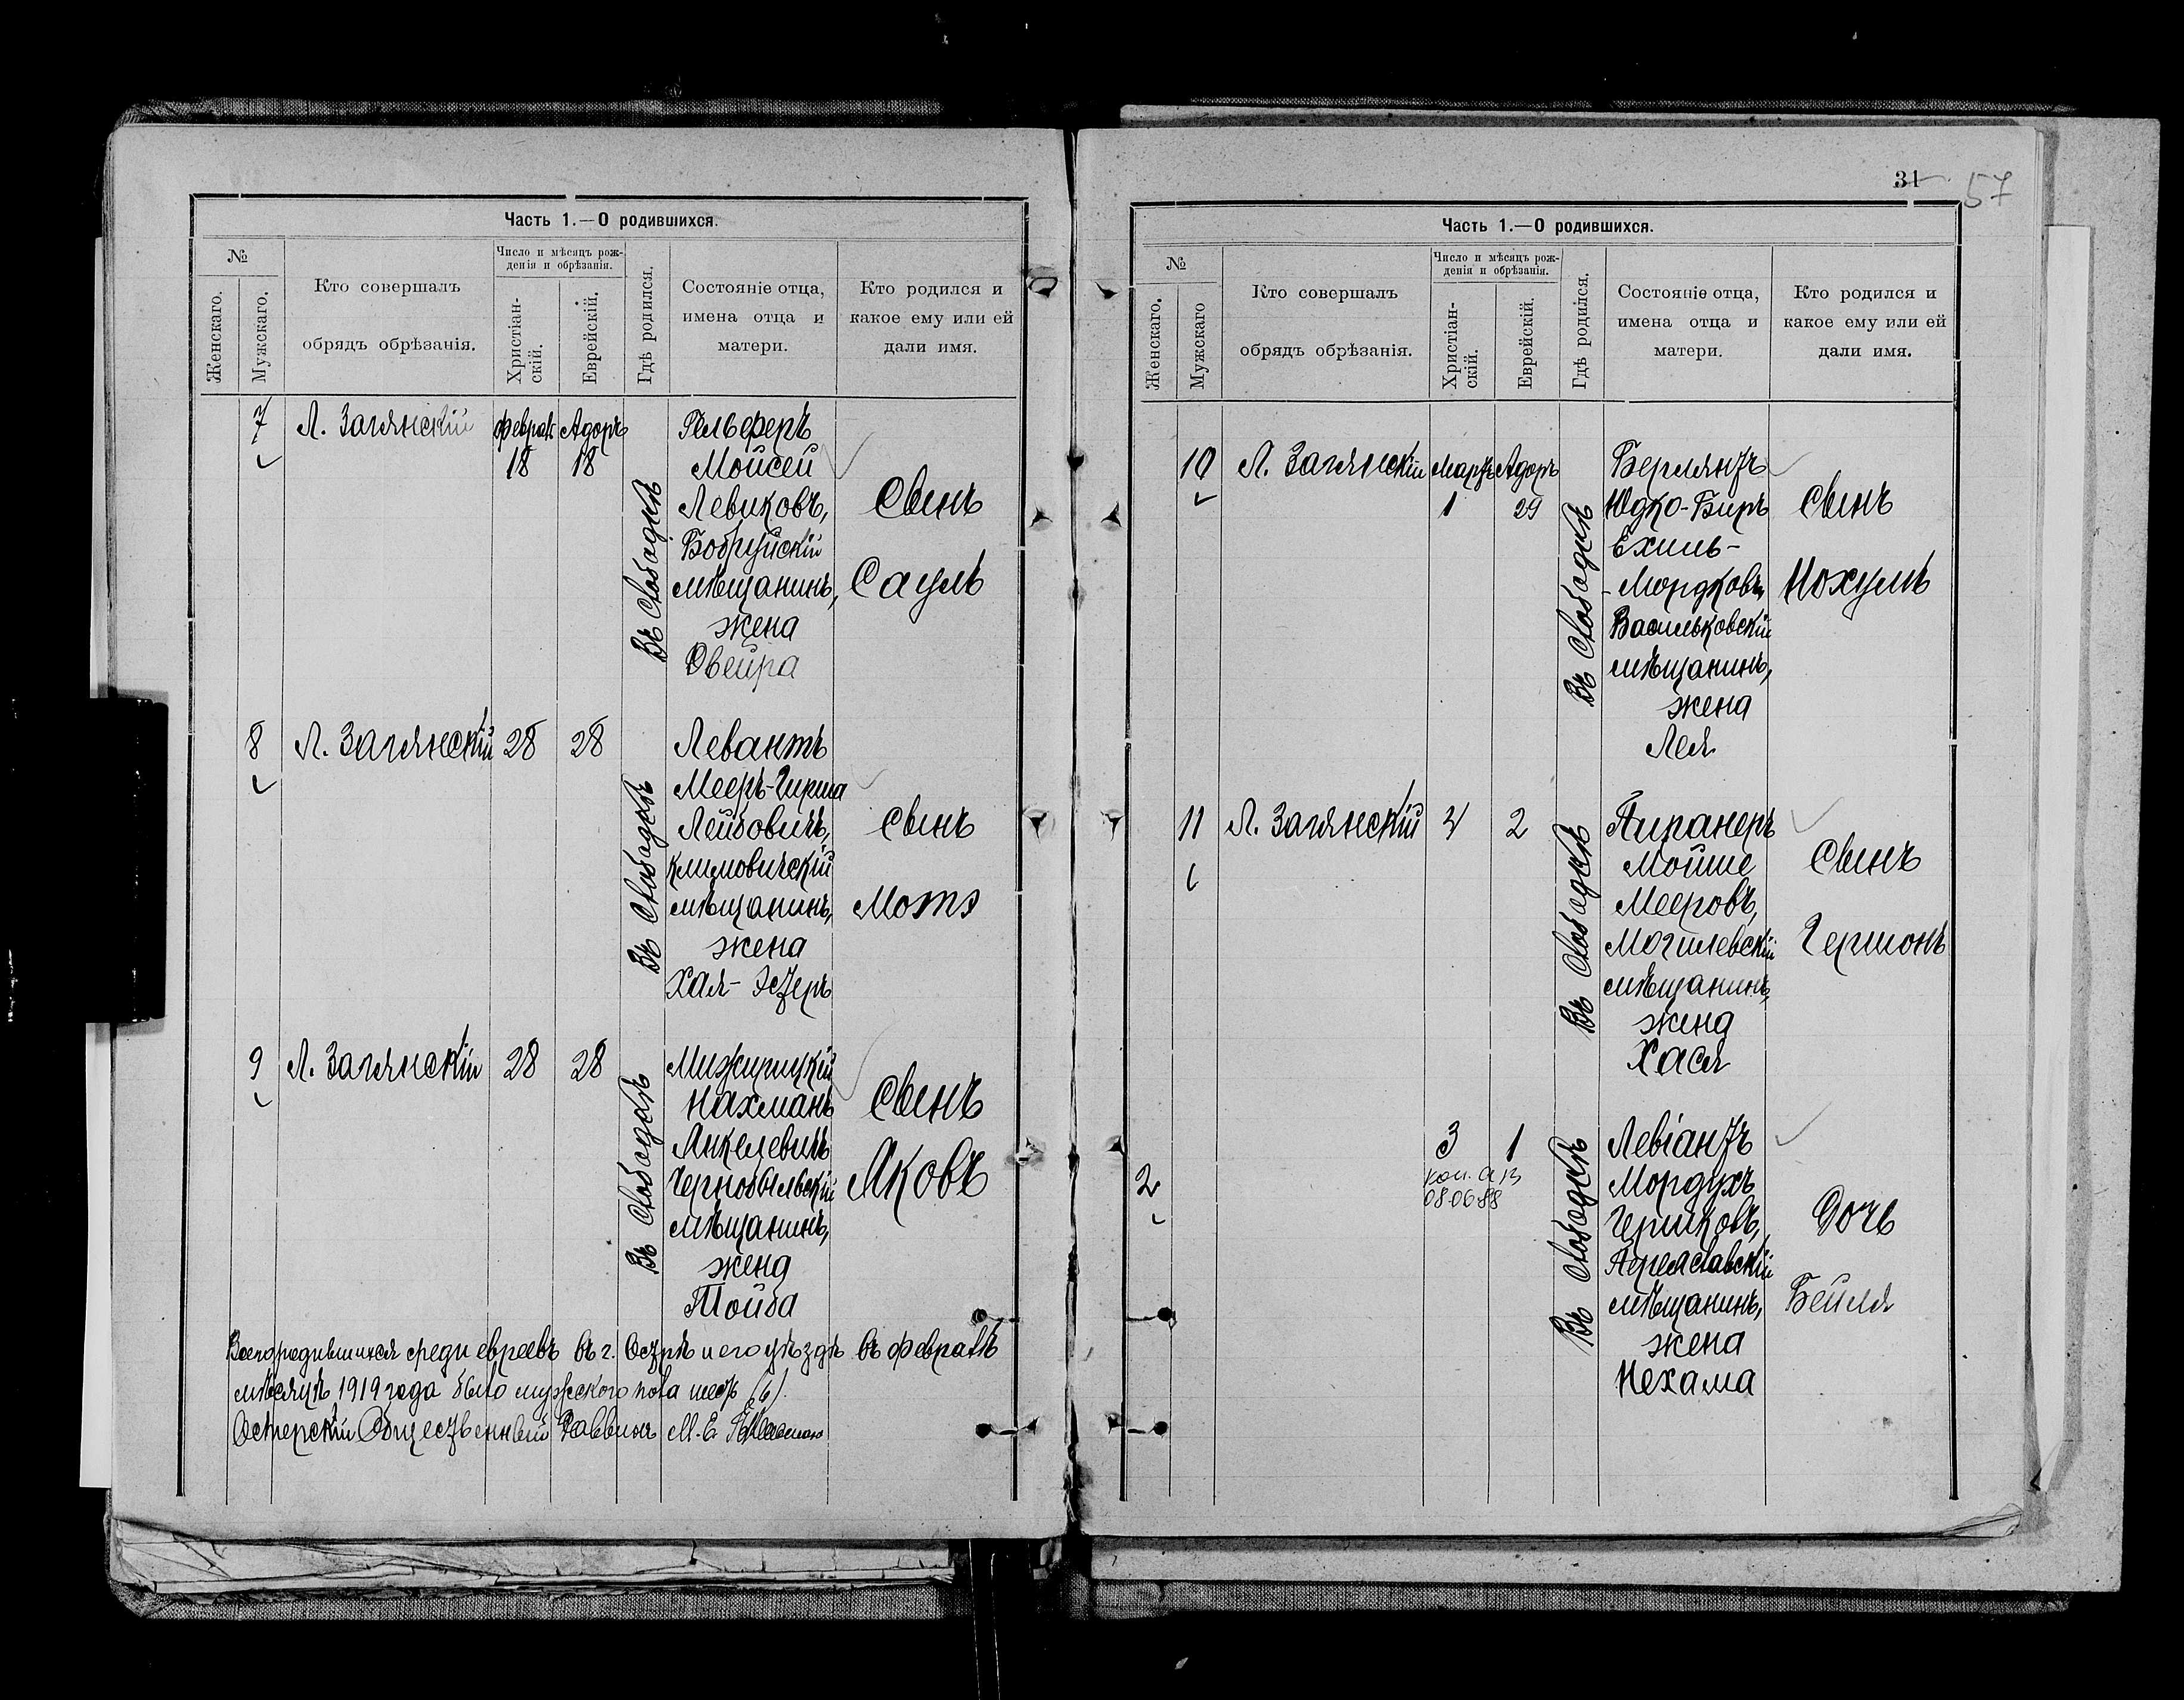 Часть 1.—О родившихся.
№
Женскаго.
Мужскаго.
Кто совершалъ
обрядъ обрѣзанія.
Число и мѣсяцъ рож-
денія и обрѣзанія.
Христіан-
скій.
Еврейскій.
Гдѣ родился.
Состояніе отца,
имена отца и
матери.
Кто родился и
какое ему или ей
дали имя.
7 Л. Загянскій Феврал Адоръ
18 18
Въ Слободкѣ
Гельферъ
Мойсей
Левиковъ,
Бобруйскій
мѣщанинъ,
жена
Двейра
Сынъ
Саулъ
8 Л. Загянскій 28 28
Въ Слободкѣ
Левантъ
Мееръ-Гирша
Лейбовичъ,
Климовичскій
мѣщанинъ,
жена
Хая-Эстеръ
Сынъ
Мотэ
9 Л. Загянскій 28 28
Въ Слободкѣ
Мижирицкій
Нахманъ
Янкелевичъ
Чернобыльскій
мѣщанинъ,
жена
Тойба
Сынъ
Яковъ
Всего родившихся среди евреевъ въ г. Острѣ и его уѣздѣ въ февралѣ
мѣсяцѣ 1919 года было мужского пола шесть (6).
Остерскій Общественный Раввинъ М. Е.
31 57
Часть 1.—О родившихся.
№
Женскаго.
Мужскаго
Кто совершалъ
обрядъ обрѣзанія.
Число и мѣсяцъ рож-
денія и обрѣзанія.
Христіан-
скій.
Еврейскій.
Гдѣ родился.
Состояніе отца,
имена отца и
матери.
Кто родился и
какое ему или ей
дали имя.
10 Л. Загянскій Мартъ Адоръ
1 29
Въ Слободкѣ
Берлянтъ
Юдко-Биръ
Ехиль-
-Мордковъ
Васильковскій
мѣщанинъ,
жена
Лея
Сынъ
Нохумъ
11 Л. Загянскій 4 2
Въ Слободкѣ
Пиранеръ
Мойше
Мееровъ,
Могилевскій
мѣщанинъ,
жена
Хася
Сынъ
Гершонъ
2 3 1
08.06.88
Въ Слободкѣ
Левіантъ
Мордухъ
Гершковъ,
Переяславскій
мѣщанинъ,
жена
Нехама
Дочь
Бейля